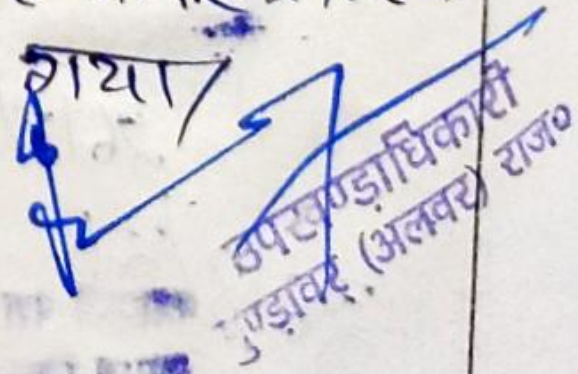 गया/
उपखण्ड़ाधिकारी
मुण्ड़ावर, (अलवर) राज०